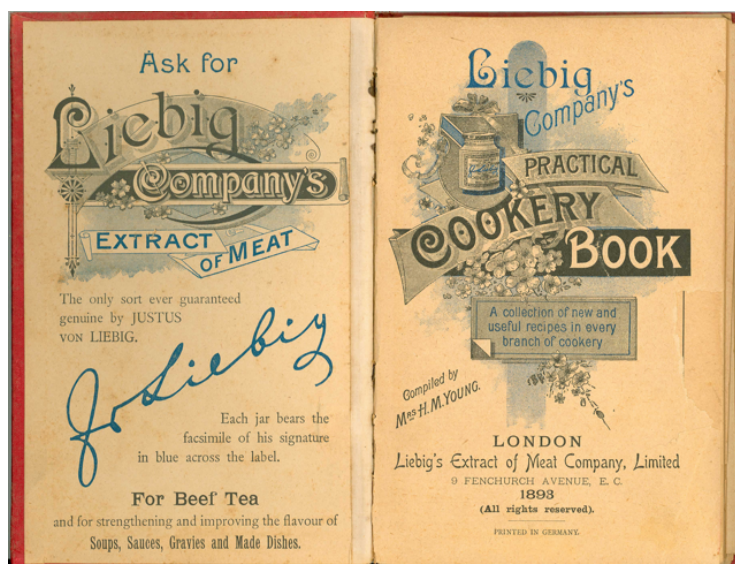 Ask for
Liebig
Company's
EXTRACT
OF MEAT
The only sort ever guaranteed
genuine by JUSTUS
VON LIEBIG.
Jv Liebig
Each jar bears the
facsimile of his signature
in blue across the label.
For Beef Tea
and for strengthening and improving the flavour of
Soups, Sauces, Gravies and Made Dishes.
Liebig
Company's
PRACTICAL
COOKERY
BOOK
A collection of new and
useful recipes in every
branch of cookery
Compiled by
Mrs H. M. YOUNG.
LONDON
Liebig's Extract of Meat Company, Limited
9 FENCHURCH AVENUE, E. C.
1893
(All rights reserved).
PRINTED IN GERMANY.